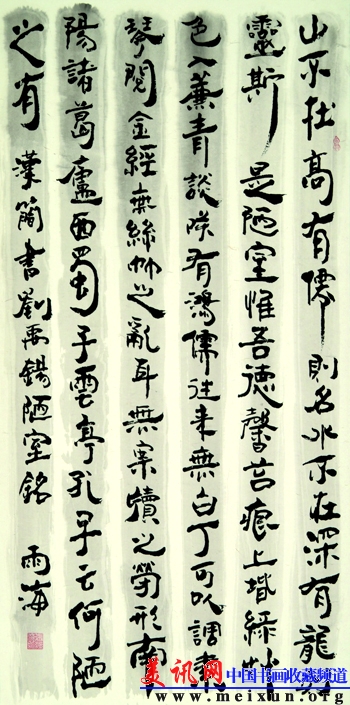 山不在高有僊則名水不在深有龍則
靈斯是陋室惟吾德馨苔痕上堦綠草
色入簾青談咲有鴻儒往来無白丁可以調素
琴閲金經無絲竹之亂耳無案牘之勞形南
陽諸葛廬西蜀子雲亭孔子云何陋
之有 漢簡書劉禹錫陋室銘 雨海
美讯网 中国书画收藏频道
www.meixun.org